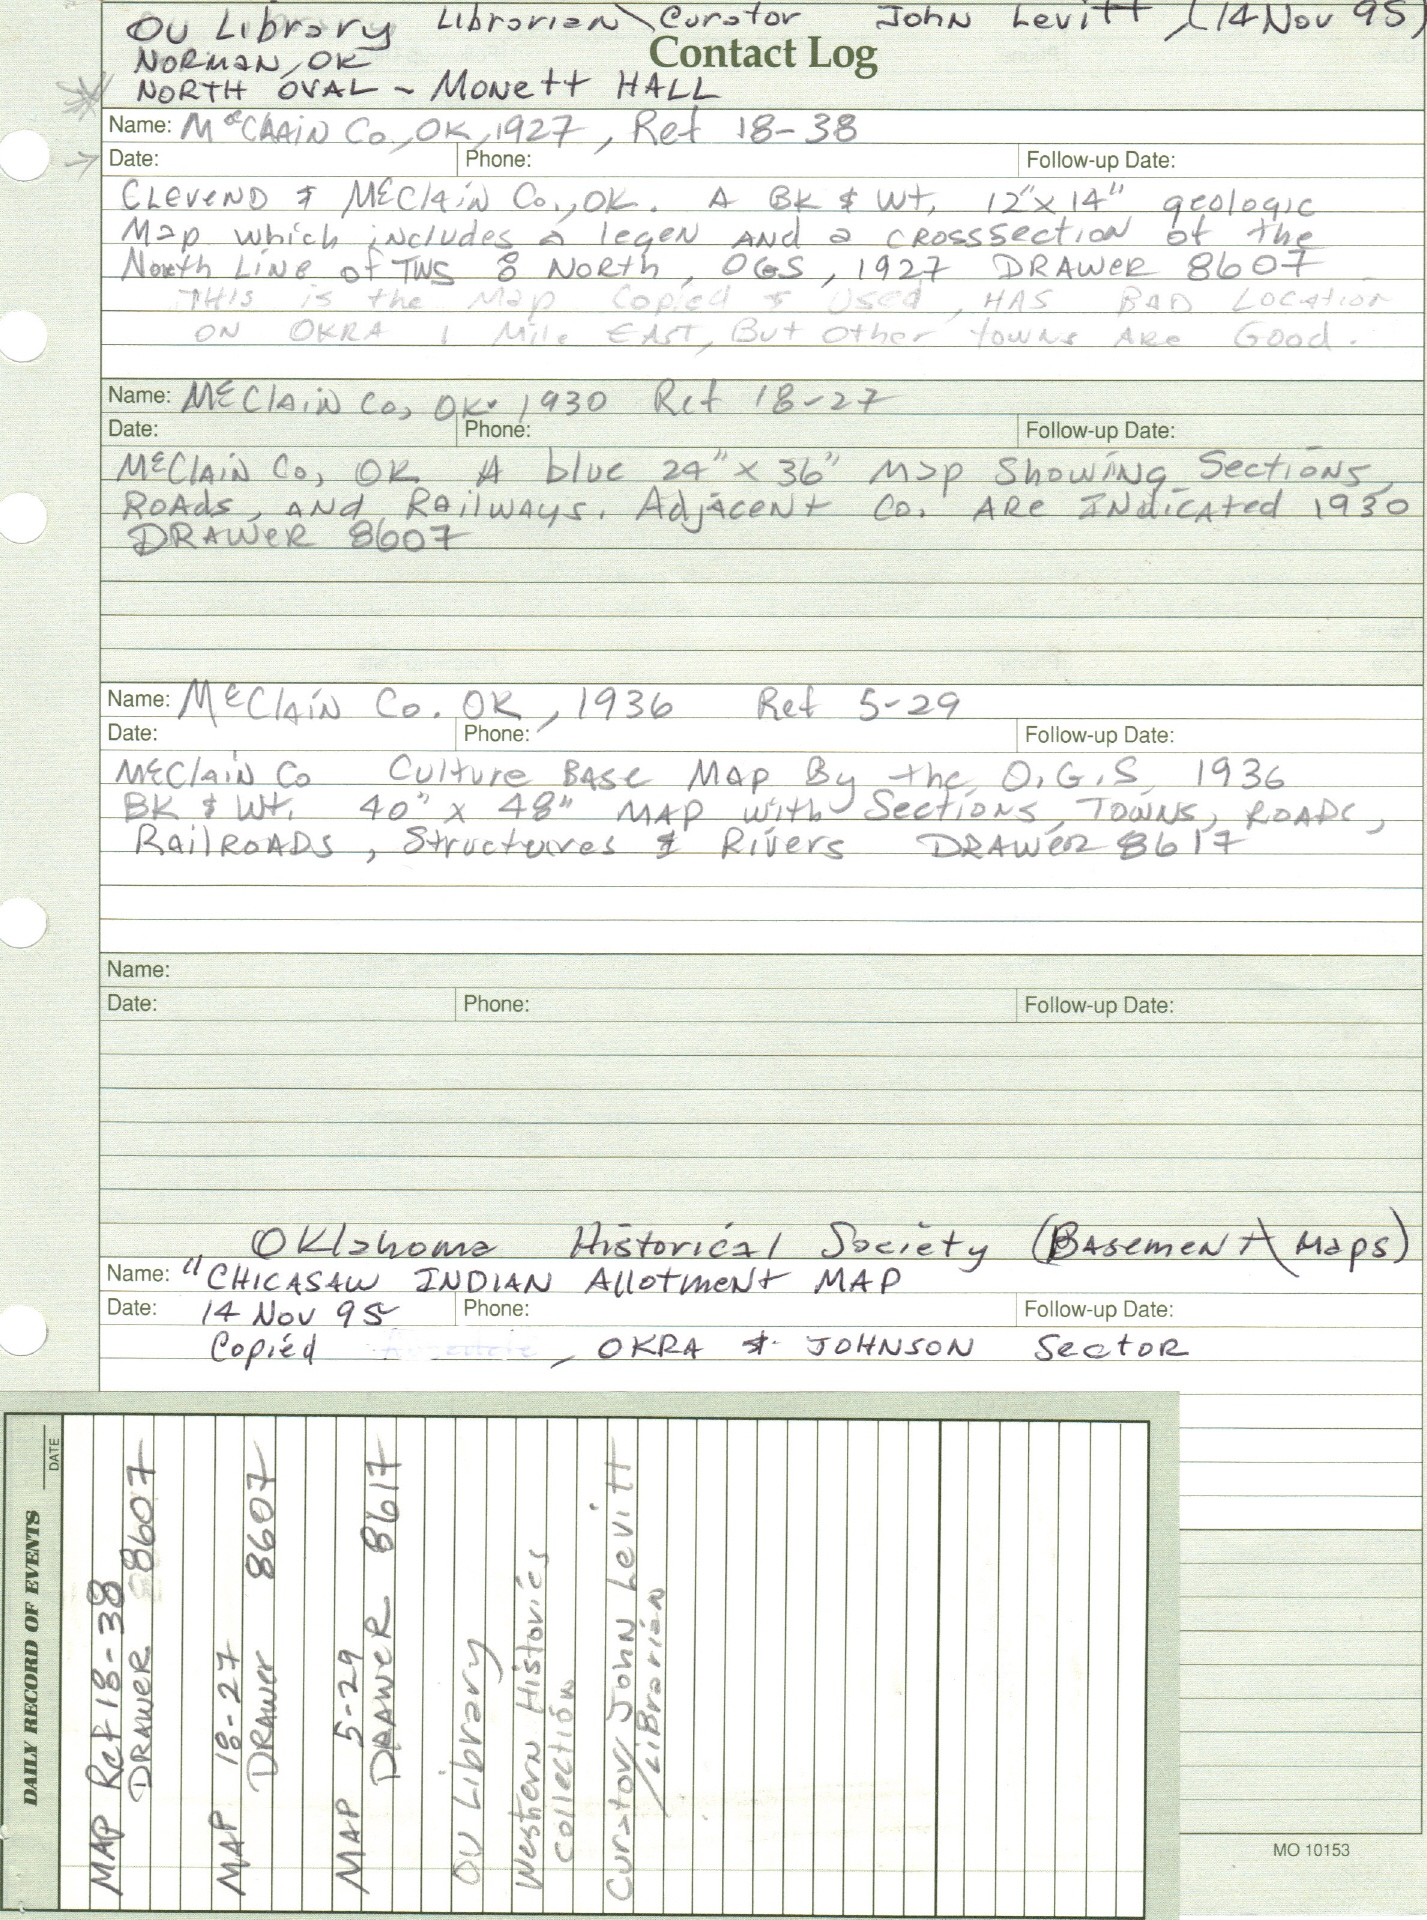 OU Library Librarian\Curator John Levitt, (14 Nov 95)
Contact Log
NORMAN, OK
NORTH OVAL ~ MONETT HALL
Name: McCLAIN Co., OK, 1927, Ref 18-38
Date: Phone: Follow-up Date:
CLEVEND & McClAiN Co., OK. A BK & Wt, 12"x14" geologic
Map which iNcludes a legeN AND a CROSSSECTiON of the
North LiNe of TWS 8 North, OGS, 1927 DRAWER 8607
THis is the Map Copied & Used, HAS BAD LOCAtioN
ON OKRA 1 Mile EAST, But Other towNs ARe Good.
Name: McClAiN Co, OK. 1930 Ref 18-27
Date: Phone: Follow-up Date:
McClAiN Co, OK A blue 24"x36" Map ShowiNg SectioNs,
ROAds, AND RAilwAys. AdjAceNt Co. ARe INdicAted 1930
DRAWER 8607
Name: McClAiN Co. OK, 1936 Ref 5-29
Date: Phone: Follow-up Date:
McClaiN Co Culture BASe Map By the O.G.S, 1936
BK & Wt. 40" x 48" MAP with SectioNs, TowNs, ROADS,
RailROADS, Structures & Rivers DRAWER 8617
Name:
Date: Phone: Follow-up Date:
OKlahoma Historical Society (BasemeNt\Maps)
Name: "CHICASAW INDIAN AllotmeNt MAP
Date: 14 Nov 95 Phone: Follow-up Date:
Copied , OKRA & JOHNSON SectoR
DAILY RECORD OF EVENTS
DATE
MAP Ref 18-38
DRAWER 8607
MAP 18-27
DRAwer 8607
MAP 5-29
DRAWER 8617
OU Library
WesterN Histories
collectioN
Curator/JohN Levitt
/LiBrariaN
MO 10153